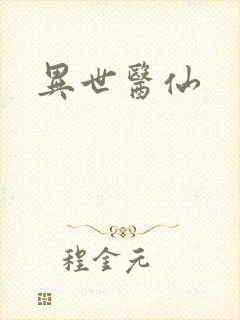 異世醫仙
程金元